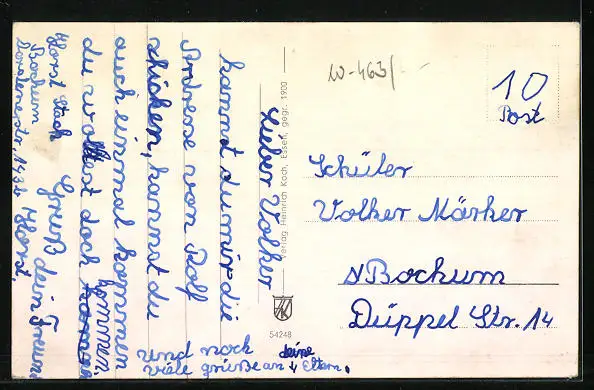 Lieber Volker
kannst du mir die
Adrese von Rolf
schicken, kannst du
auch einmal kommen
du wolltest doch kommen.
Gruß dein Freund
Horst.
Horst Stach
Bochum
und noch
viele grüße an deine Eltern.
W-463/-
10
Post
Schüler
Volker Märker
Bochum
Düppel Str. 14
Verlag Heinrich Koch, Essen, gegr. 1900
HK
54248